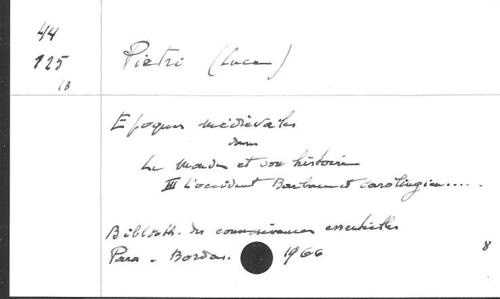 44
125
13
Pietri (Luce)
Epoques médiévales
dans
Le Monde et son histoire
III L'occident Barbare et carolingien.....
Biblioth. des connaissances essentielles
Paris. Bordas. 1966
8